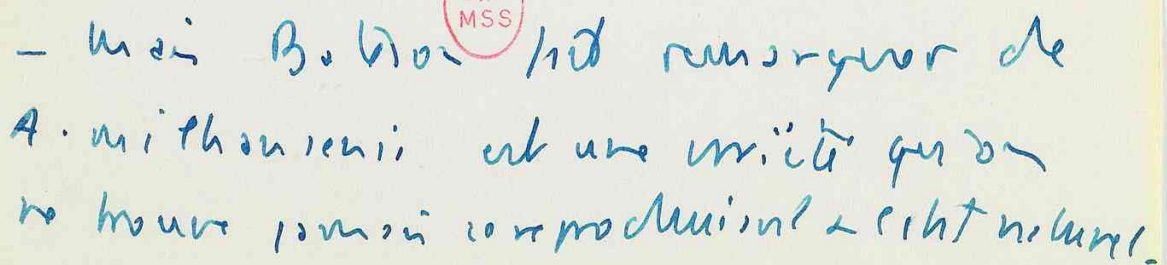 MSS
– Mais Bateson fait remarquer de
A. milhausenii est une variété qu'on
ne trouve jamais se reproduisant à l'état naturel.